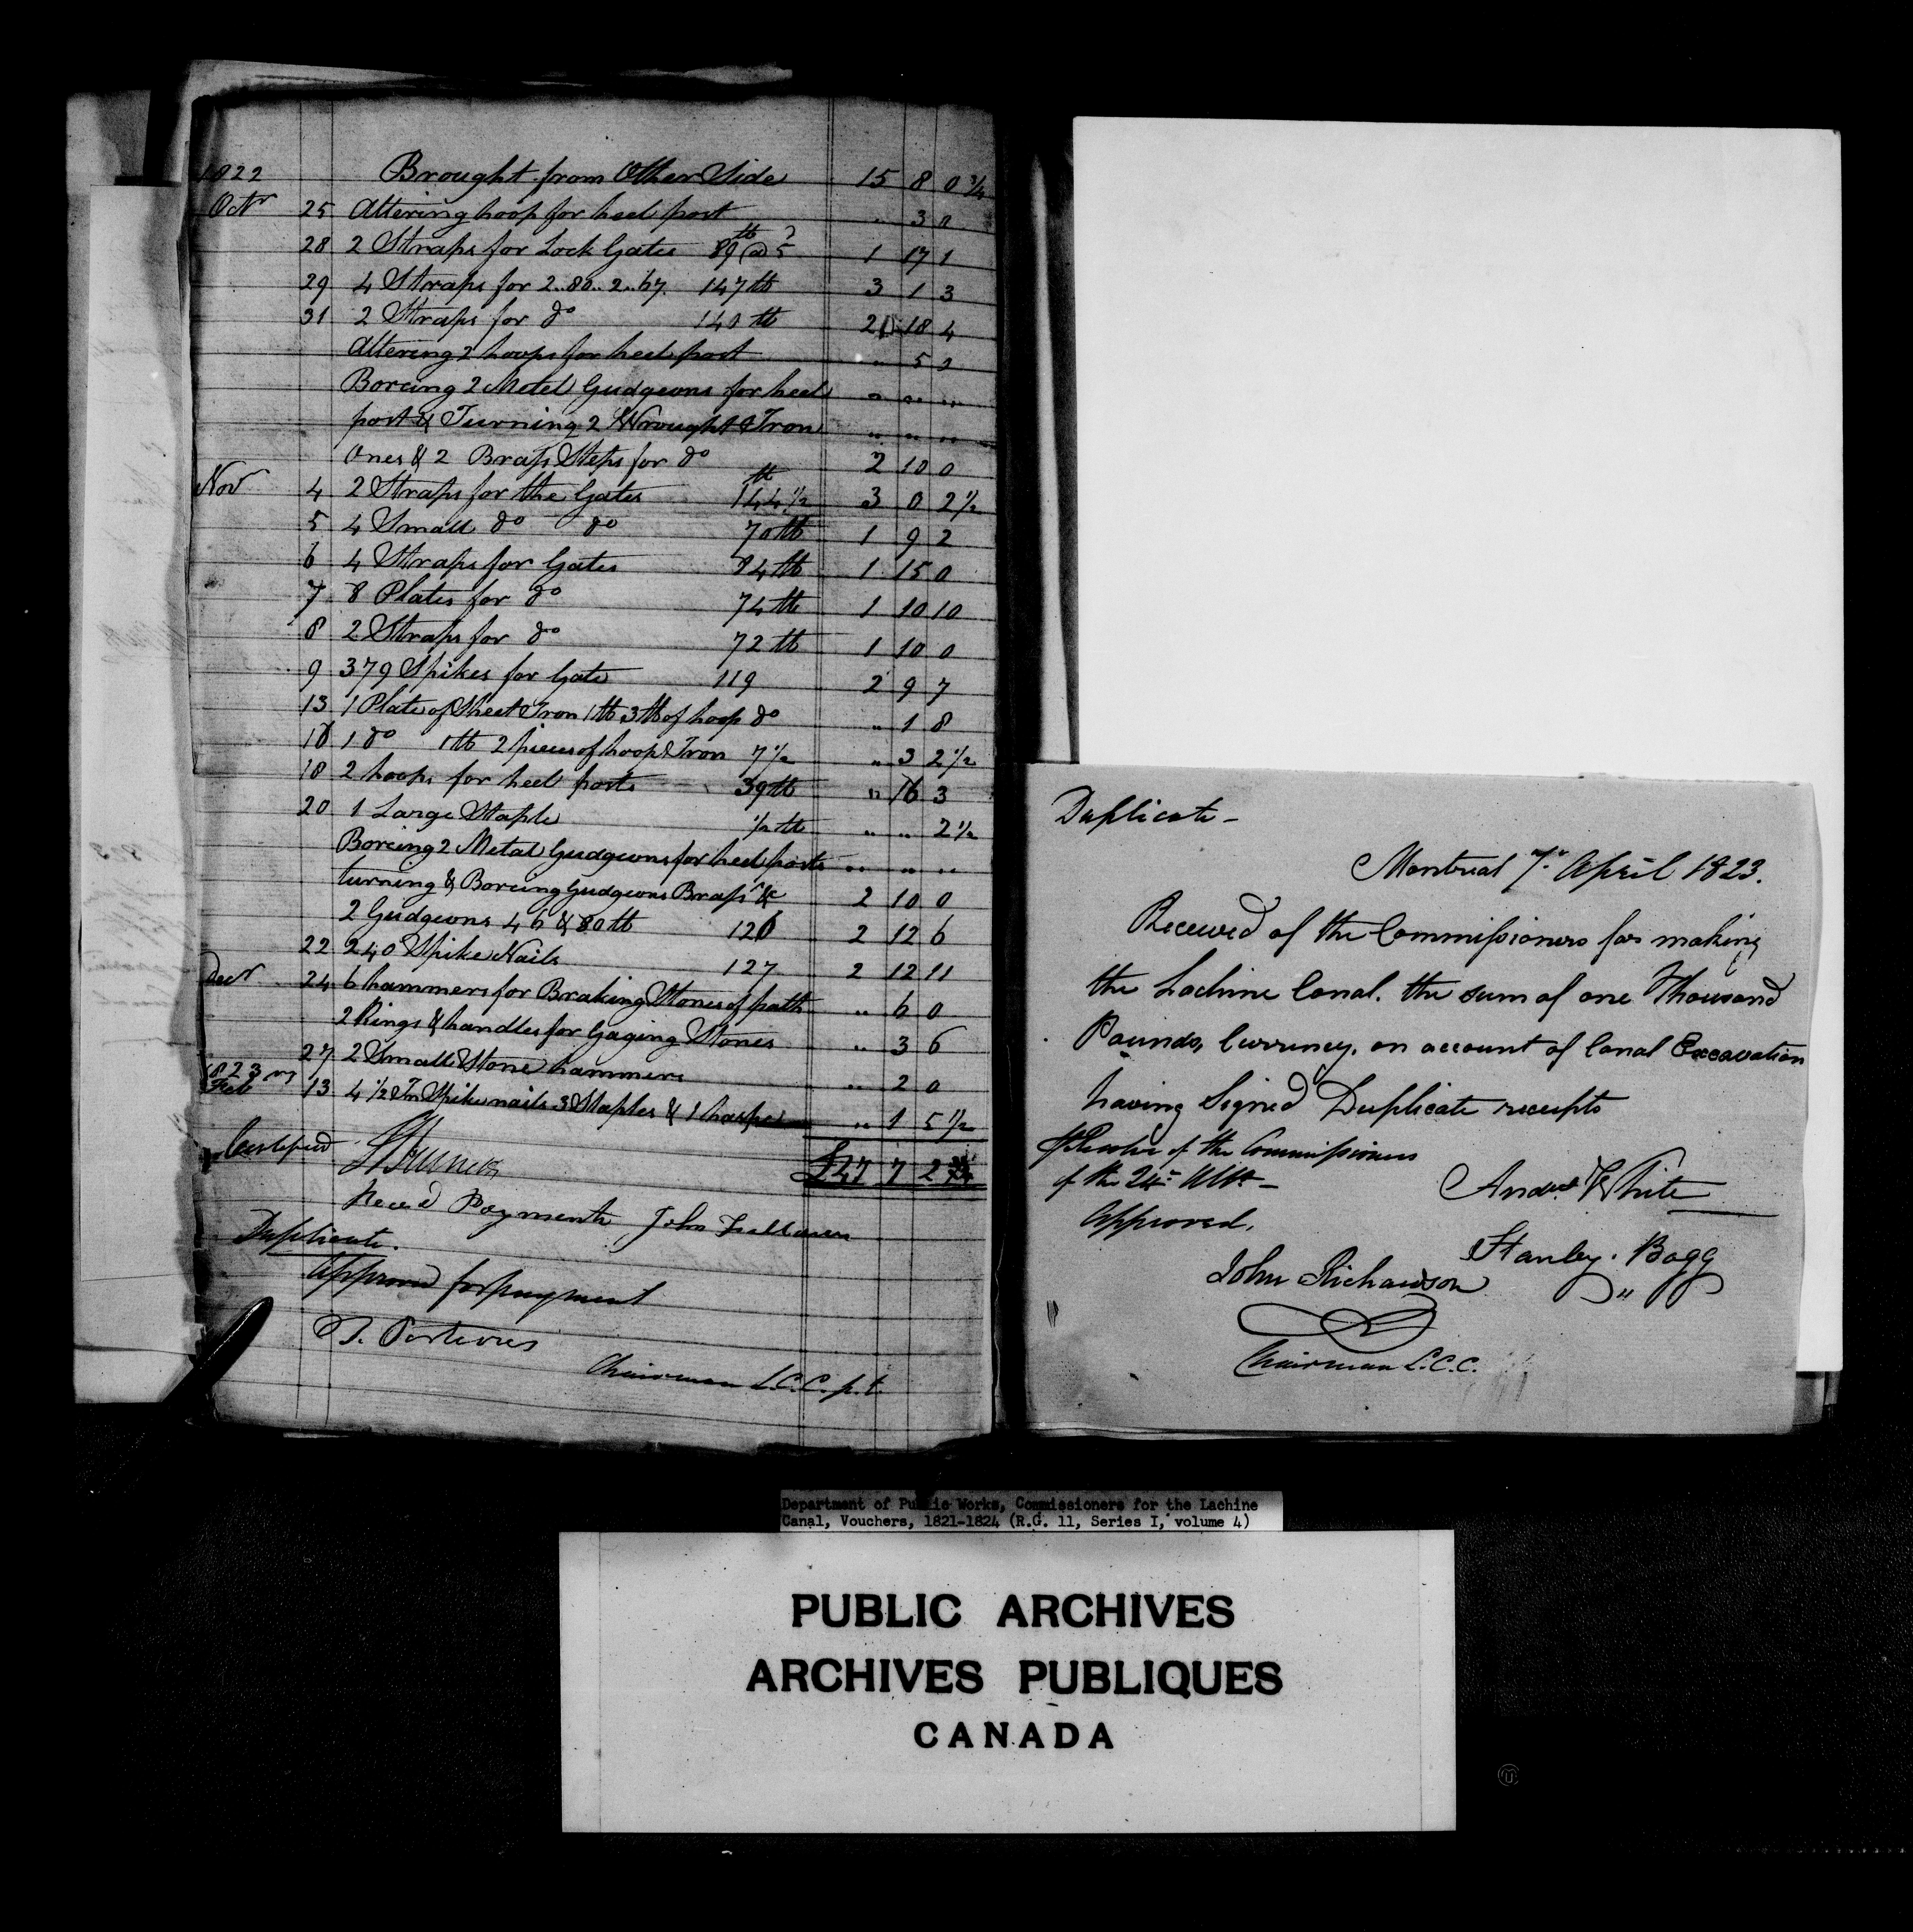 1822 Brought from Other Side 15 8 0 3/4
Octr 25 Altering hoop for heel post " 3 0
28 2 Straps for Lock Gates 89 lb @ 5 1 17 1
29 4 Straps for 2..80..2..67. 147 lb 3 1 3
31 2 Straps for do 140 lb 2 18 4
Altering 2 hoops for heel post " 5 0
Boreing 2 Metel Gudgeons for heel " " "
post & Turning 2 Wrought Iron " " "
Ones & 2 Brass Steps for do 2 10 0
Novr 4 2 Straps for the Gates 144 1/2 lb 3 0 2 1/2
5 4 Small do do 70 lb 1 9 2
6 4 Straps for Gates 84 lb 1 15 0
7 8 Plates for do 74 lb 1 10 10
8 2 Straps for do 72 lb 1 10 0
9 379 Spikes for Gate 119 2 9 7
13 1 Plate of Sheet Iron 1 lb 3 lb of hoop do " 1 8
16 1 do 1 lb 2 pieces of hoop Iron 7 1/2 " 3 2 1/2
18 2 hoops for heel posts 39 lb " 16 3
20 1 Large Staple 1/2 lb " " 2 1/2
Boreing 2 Metal Gudgeons for heel posts " " "
turning & Boreing Gudgeons Brass &c 2 10 0
2 Gudgeons 46 & 80 lb 126 2 12 6
22 240 Spike Nails 127 2 12 11
Decr 24 6 hammers for Braking Stones of path " 6 0
2 Rings & handles for Gaging Stones " 3 6
27 2 Small Stone hammers " 2 0
1823
Feb 13 4 1/2 In Spike nails 3 Staples & 1 haspe " 1 5 1/2
Certified £47 7 2
Recd Payment John
Duplicate.
Approved for payment
T. Porteous
Chairman L.C.C. p.t.
Duplicate –
Montreal 7th April 1823.
Received of the Commissioners for making
the Lachine Canal. the sum of one Thousand
Pounds, Currency. on account of Canal Excavation
having Signed Duplicate receipts
of the Commissioners
of the 24th Ulto –
Andw White
Approved.
Stanley Bagg
John Richardson
Chairman L.C.C.
Department of Public Works, Commissioners for the Lachine
Canal, Vouchers, 1821-1824 (R.G. 11, Series I, volume 4)
PUBLIC ARCHIVES
ARCHIVES PUBLIQUES
CANADA